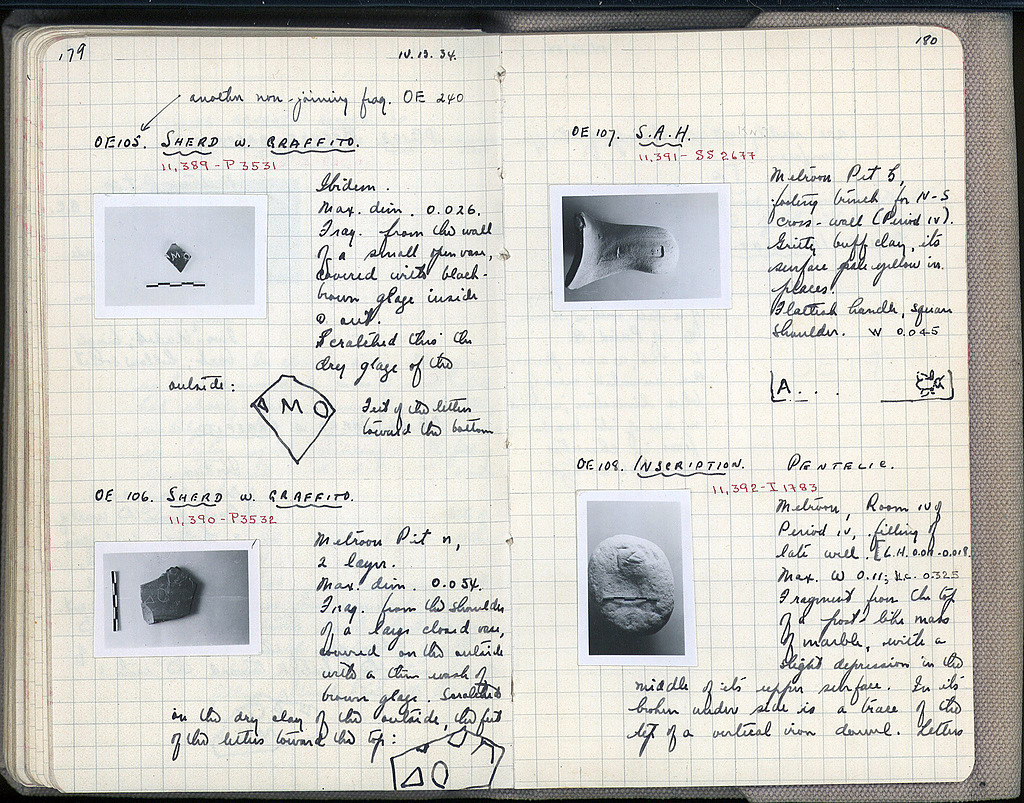 179
IV.13.34.
another non-joining frag. OE 240
OE105. SHERD W. GRAFFITO.
11,389 - P 3531
Ibidem.
Max. dim. 0.026.
Frag. from the wall
of a small open vase,
covered with black-
brown glaze inside
& out.
Scratched thro the
dry glaze of the
outside:
AMO
Feet of the letters
toward the bottom
OE 106. SHERD W. GRAFFITO.
11,390 - P3532
Metroon Pit n,
2 layer.
Max. dim. 0.054.
Frag. from the shoulder
of a large closed vase,
covered on the outside
with a thin wash of
brown glaze. Scratched
on the dry clay of the outside, the feet
of the letters toward the top:
ΔO
180
OE 107. S.A.H.
11,391 - SS 2677
Metroon Pit
footing trench for N-S
cross-wall (Period IV).
Gritty buff clay, its
surface pale yellow in
places.
Flattish handle, square
shoulder. W 0.045
[A...
OE 108. INSCRIPTION. PENTELIC.
11,392 - I 1783
Metroon, Room IV of
Period IV, filling of
late well. L.H. 0.01-0.018
Max. W 0.11; 0.325
Fragment from the top
of a post-like mass
of marble, with a
slight depression in the
middle of its upper surface. In its
broken under side is a trace of the
top of a vertical iron dowel. Letters